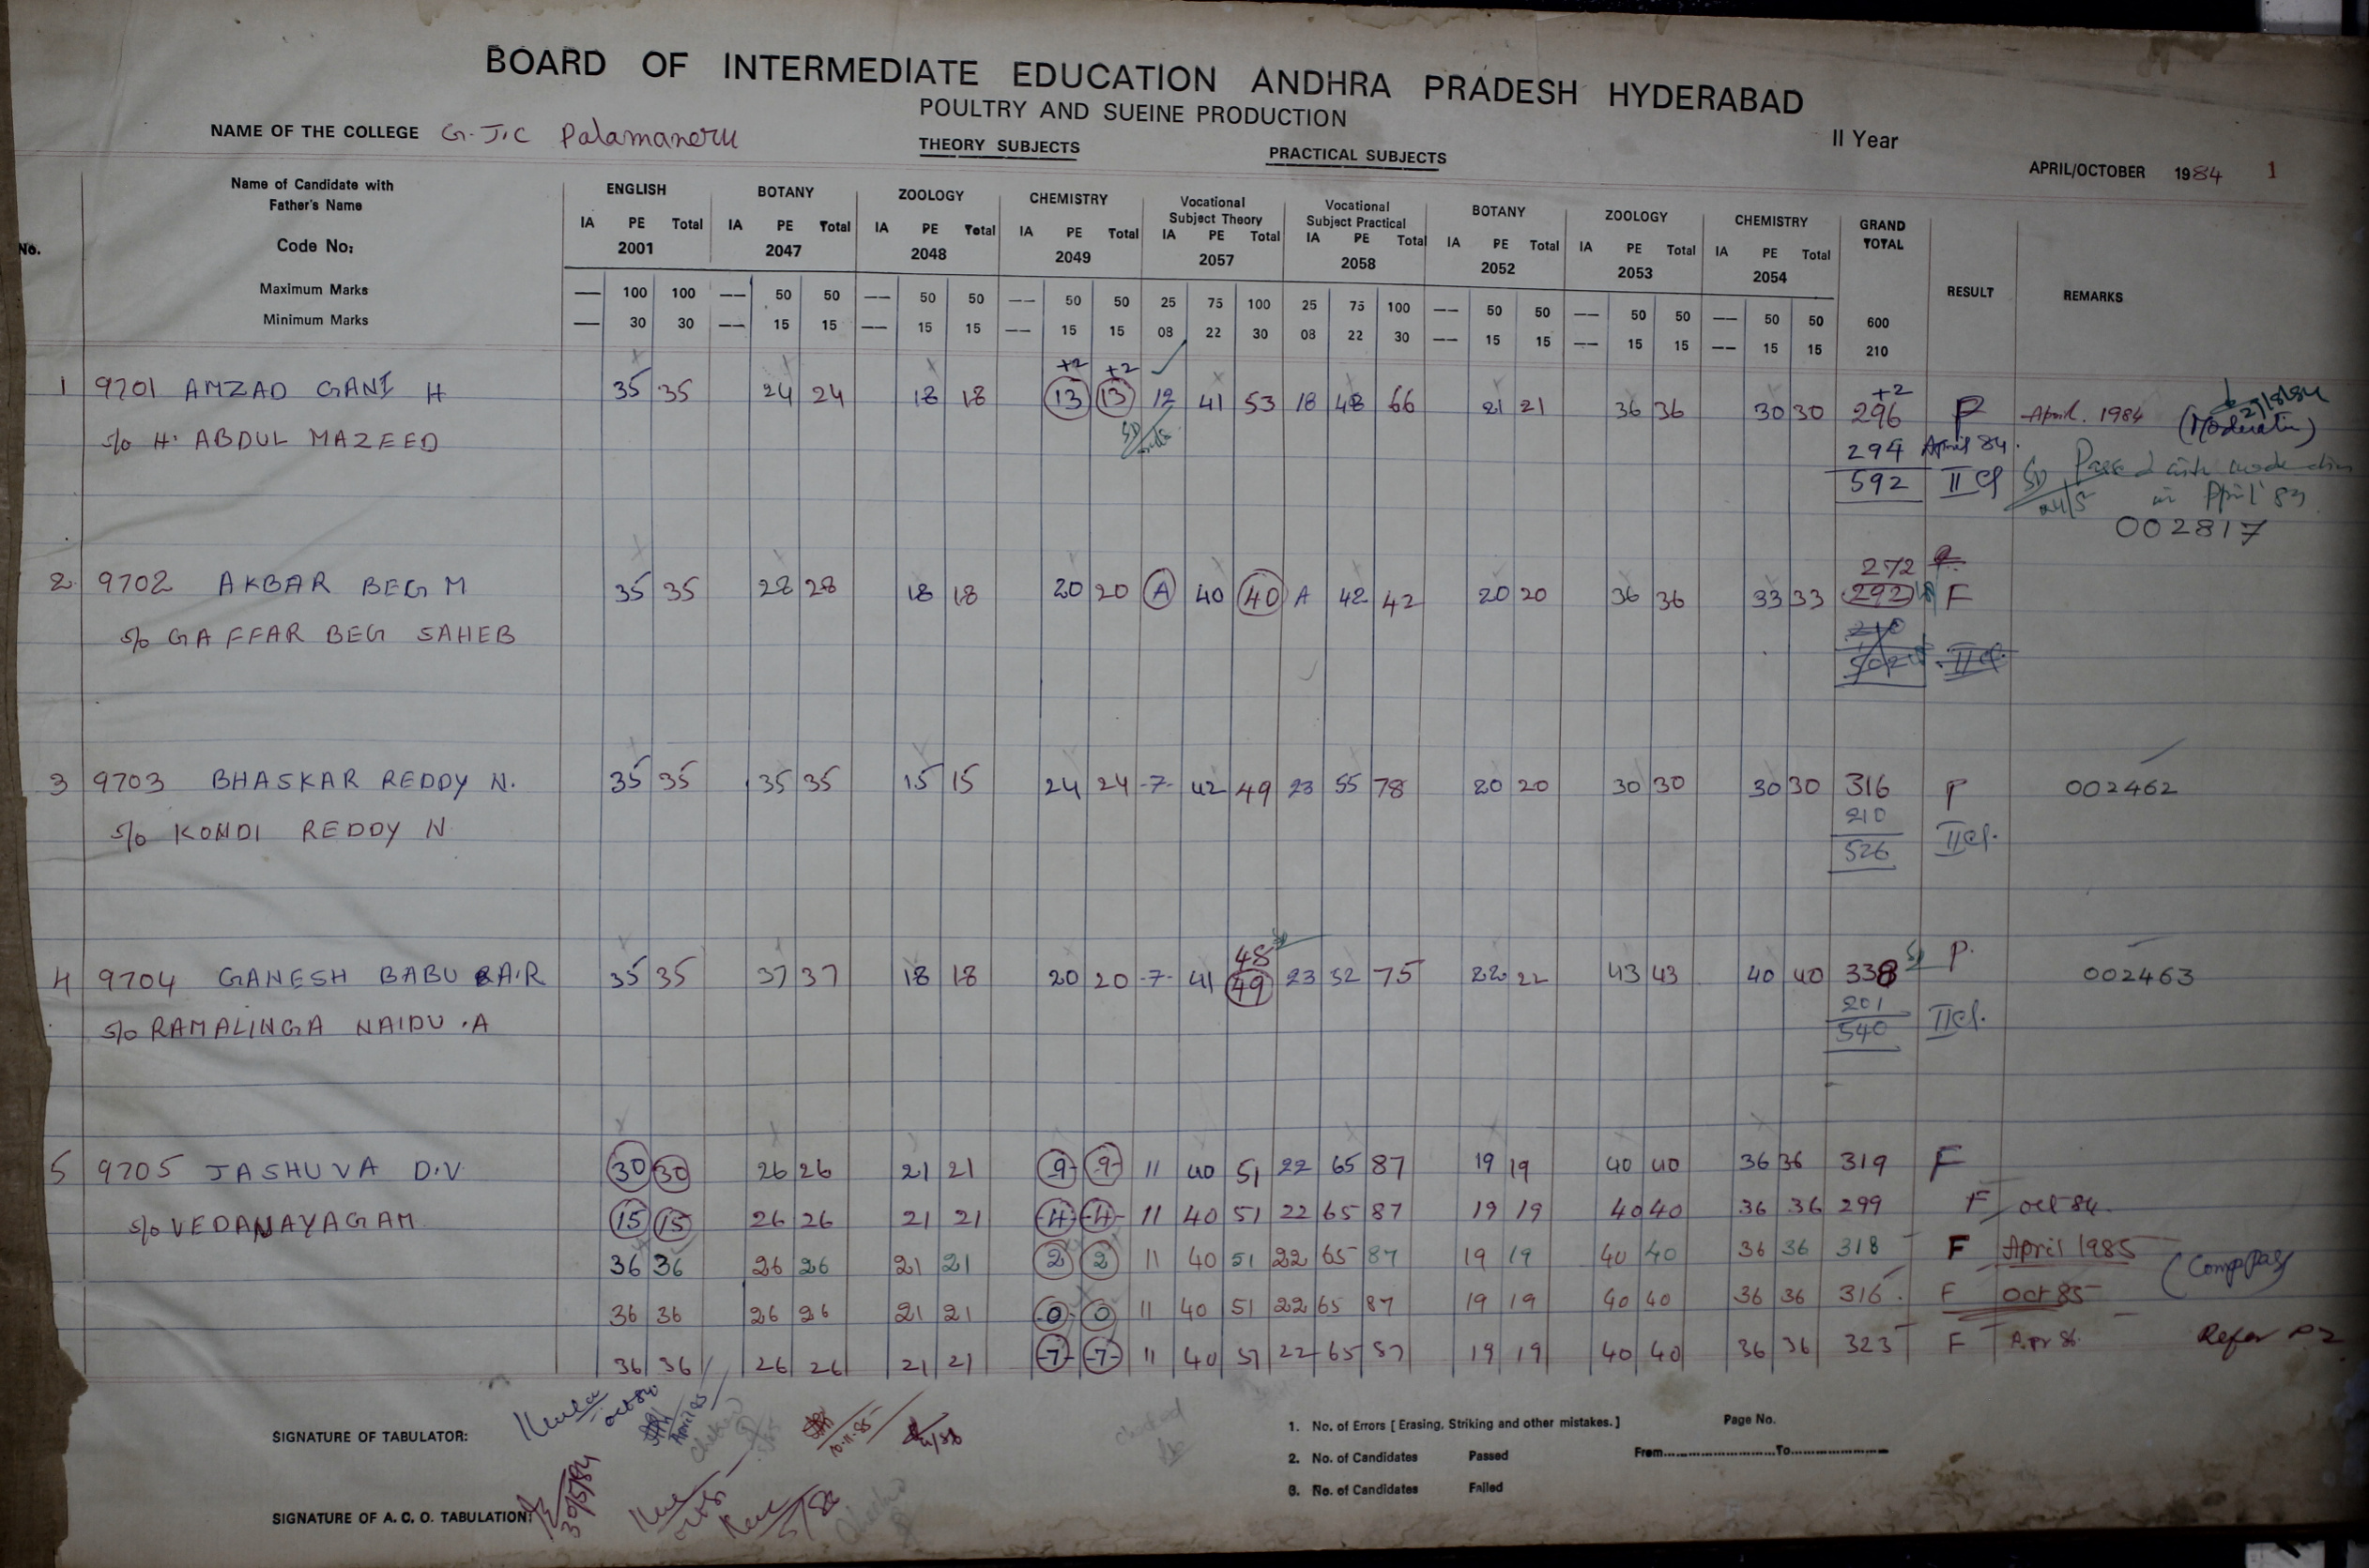 BOARD OF INTERMEDIATE EDUCATION ANDHRA PRADESH HYDERABAD
POULTRY AND SUEINE PRODUCTION
NAME OF THE COLLEGE G.J.C Palamaneru
II Year
THEORY SUBJECTS PRACTICAL SUBJECTS
APRIL/OCTOBER 1984 1
Name of Candidate with Father's Name
ENGLISH BOTANY ZOOLOGY CHEMISTRY Vocational Subject Theory Vocational Subject Practical BOTANY ZOOLOGY CHEMISTRY GRAND TOTAL
IA PE Total IA PE Total IA PE Total IA PE Total IA PE Total IA PE Total IA PE Total IA PE Total IA PE Total
No. Code No: 2001 2047 2048 2049 2057 2058 2052 2053 2054 RESULT REMARKS
Maximum Marks — 100 100 — 50 50 — 50 50 — 50 50 25 75 100 25 75 100 — 50 50 — 50 50 — 50 50 600
Minimum Marks — 30 30 — 15 15 — 15 15 — 15 15 08 22 30 08 22 30 — 15 15 — 15 15 — 15 15 210
+2 +2 +2
1 9701 AMZAD GANI H 35 35 24 24 18 18 13 13 12 41 53 18 48 66 21 21 36 36 30 30 296 P April. 1984 (Moderation)
S/o H. ABDUL MAZEED 294 April 84.
592 II Cl Passed with moderation
in April 83
002817
272
2 9702 AKBAR BEG M 35 35 28 28 18 18 20 20 A 40 40 A 42 42 20 20 36 36 33 33 292 F
S/o GAFFAR BEG SAHEB
II Cl.
3 9703 BHASKAR REDDY N. 35 35 35 35 15 15 24 24 -7- 42 49 23 55 78 20 20 30 30 30 30 316 P 002462
S/o KONDI REDDY N 210
526 II Cl.
48
4 9704 GANESH BABU A.R 35 35 37 37 18 18 20 20 -7- 41 49 23 52 75 22 22 43 43 40 40 338 P. 002463
S/o RAMALINGA NAIDU .A 201
540 II Cl.
5 9705 JASHUVA D.V 30 30 26 26 21 21 -9- -9- 11 40 51 22 65 87 19 19 40 40 36 36 319 F
S/o VEDANAYAGAM 15 15 26 26 21 21 -4- -4- 11 40 51 22 65 87 19 19 40 40 36 36 299 F oct 84.
36 36 26 26 21 21 2 2 11 40 51 22 65 87 19 19 40 40 36 36 318 F April 1985 (Comp pass
36 36 26 26 21 21 0 0 11 40 51 22 65 87 19 19 40 40 36 36 316 F oct 85
36 36 26 26 21 21 -7- -7- 11 40 51 22 65 87 19 19 40 40 36 36 323 F Apr 86 Refer P2
SIGNATURE OF TABULATOR: oct 84 April 85 10-11-85
1. No. of Errors [ Erasing, Striking and other mistakes. ] Page No.
2. No. of Candidates Passed From..............To..............
3. No. of Candidates Failed
SIGNATURE OF A. C. O. TABULATION: 30/5/84